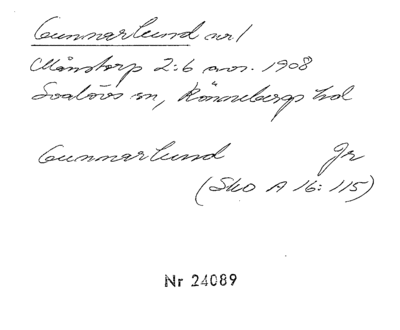 Gunnarlund nr 1
Månstorp 2:6 avs. 1908
Svalövs sn, Rönnebergs hd
Gunnarlund Gr
(Sko A 16: 115)
Nr 24089